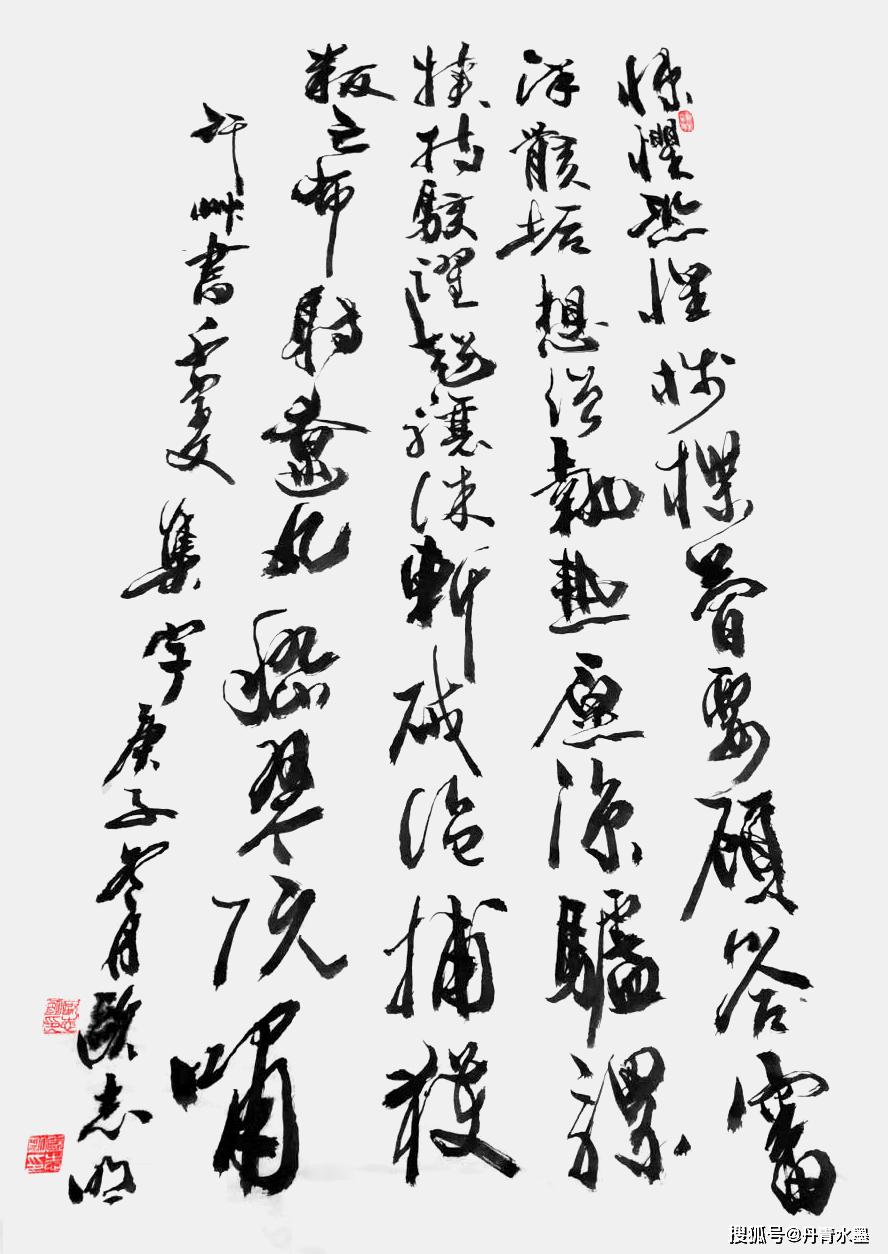 悚懼恐惶牋牒簡要顧答審
詳骸垢想浴執熱願涼驢騾
犢特駭躍超驤誅斬賊盜捕獲
叛亡布射遼丸嵇琴阮嘯
行艸書千字文集字庚子冬月歐志明
搜狐号@丹青水墨